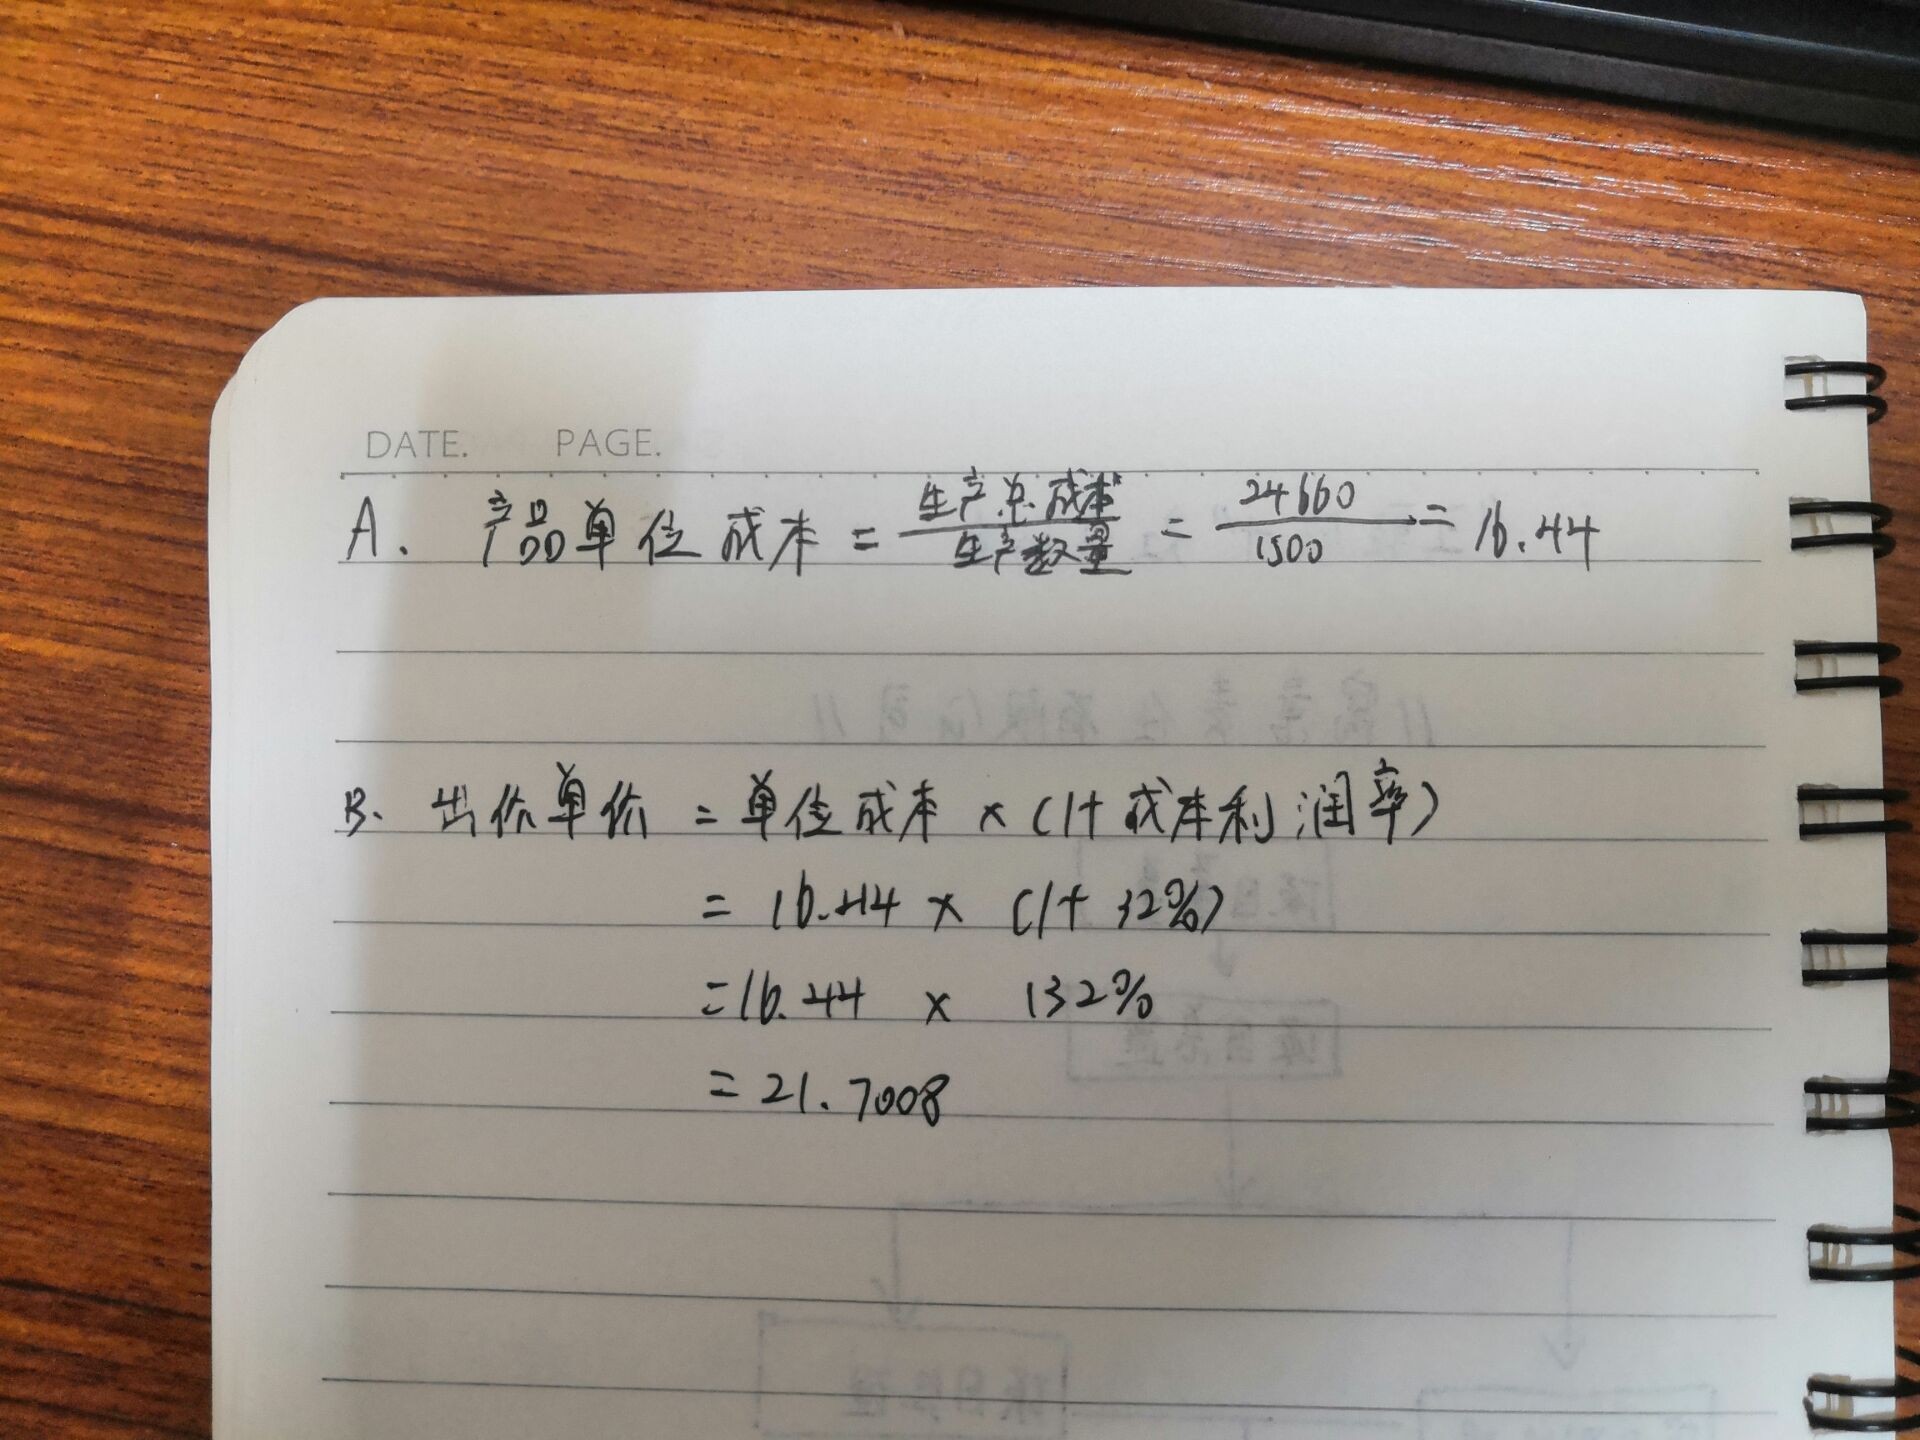 DATE. PAGE.
A. 产品单位成本 = 生产总成本 / 生产数量 = 24660 / 1500 = 16.44
B. 出价单价 = 单位成本 × (1+成本利润率)
= 16.44 × (1+32%)
= 16.44 × 132%
= 21.7008